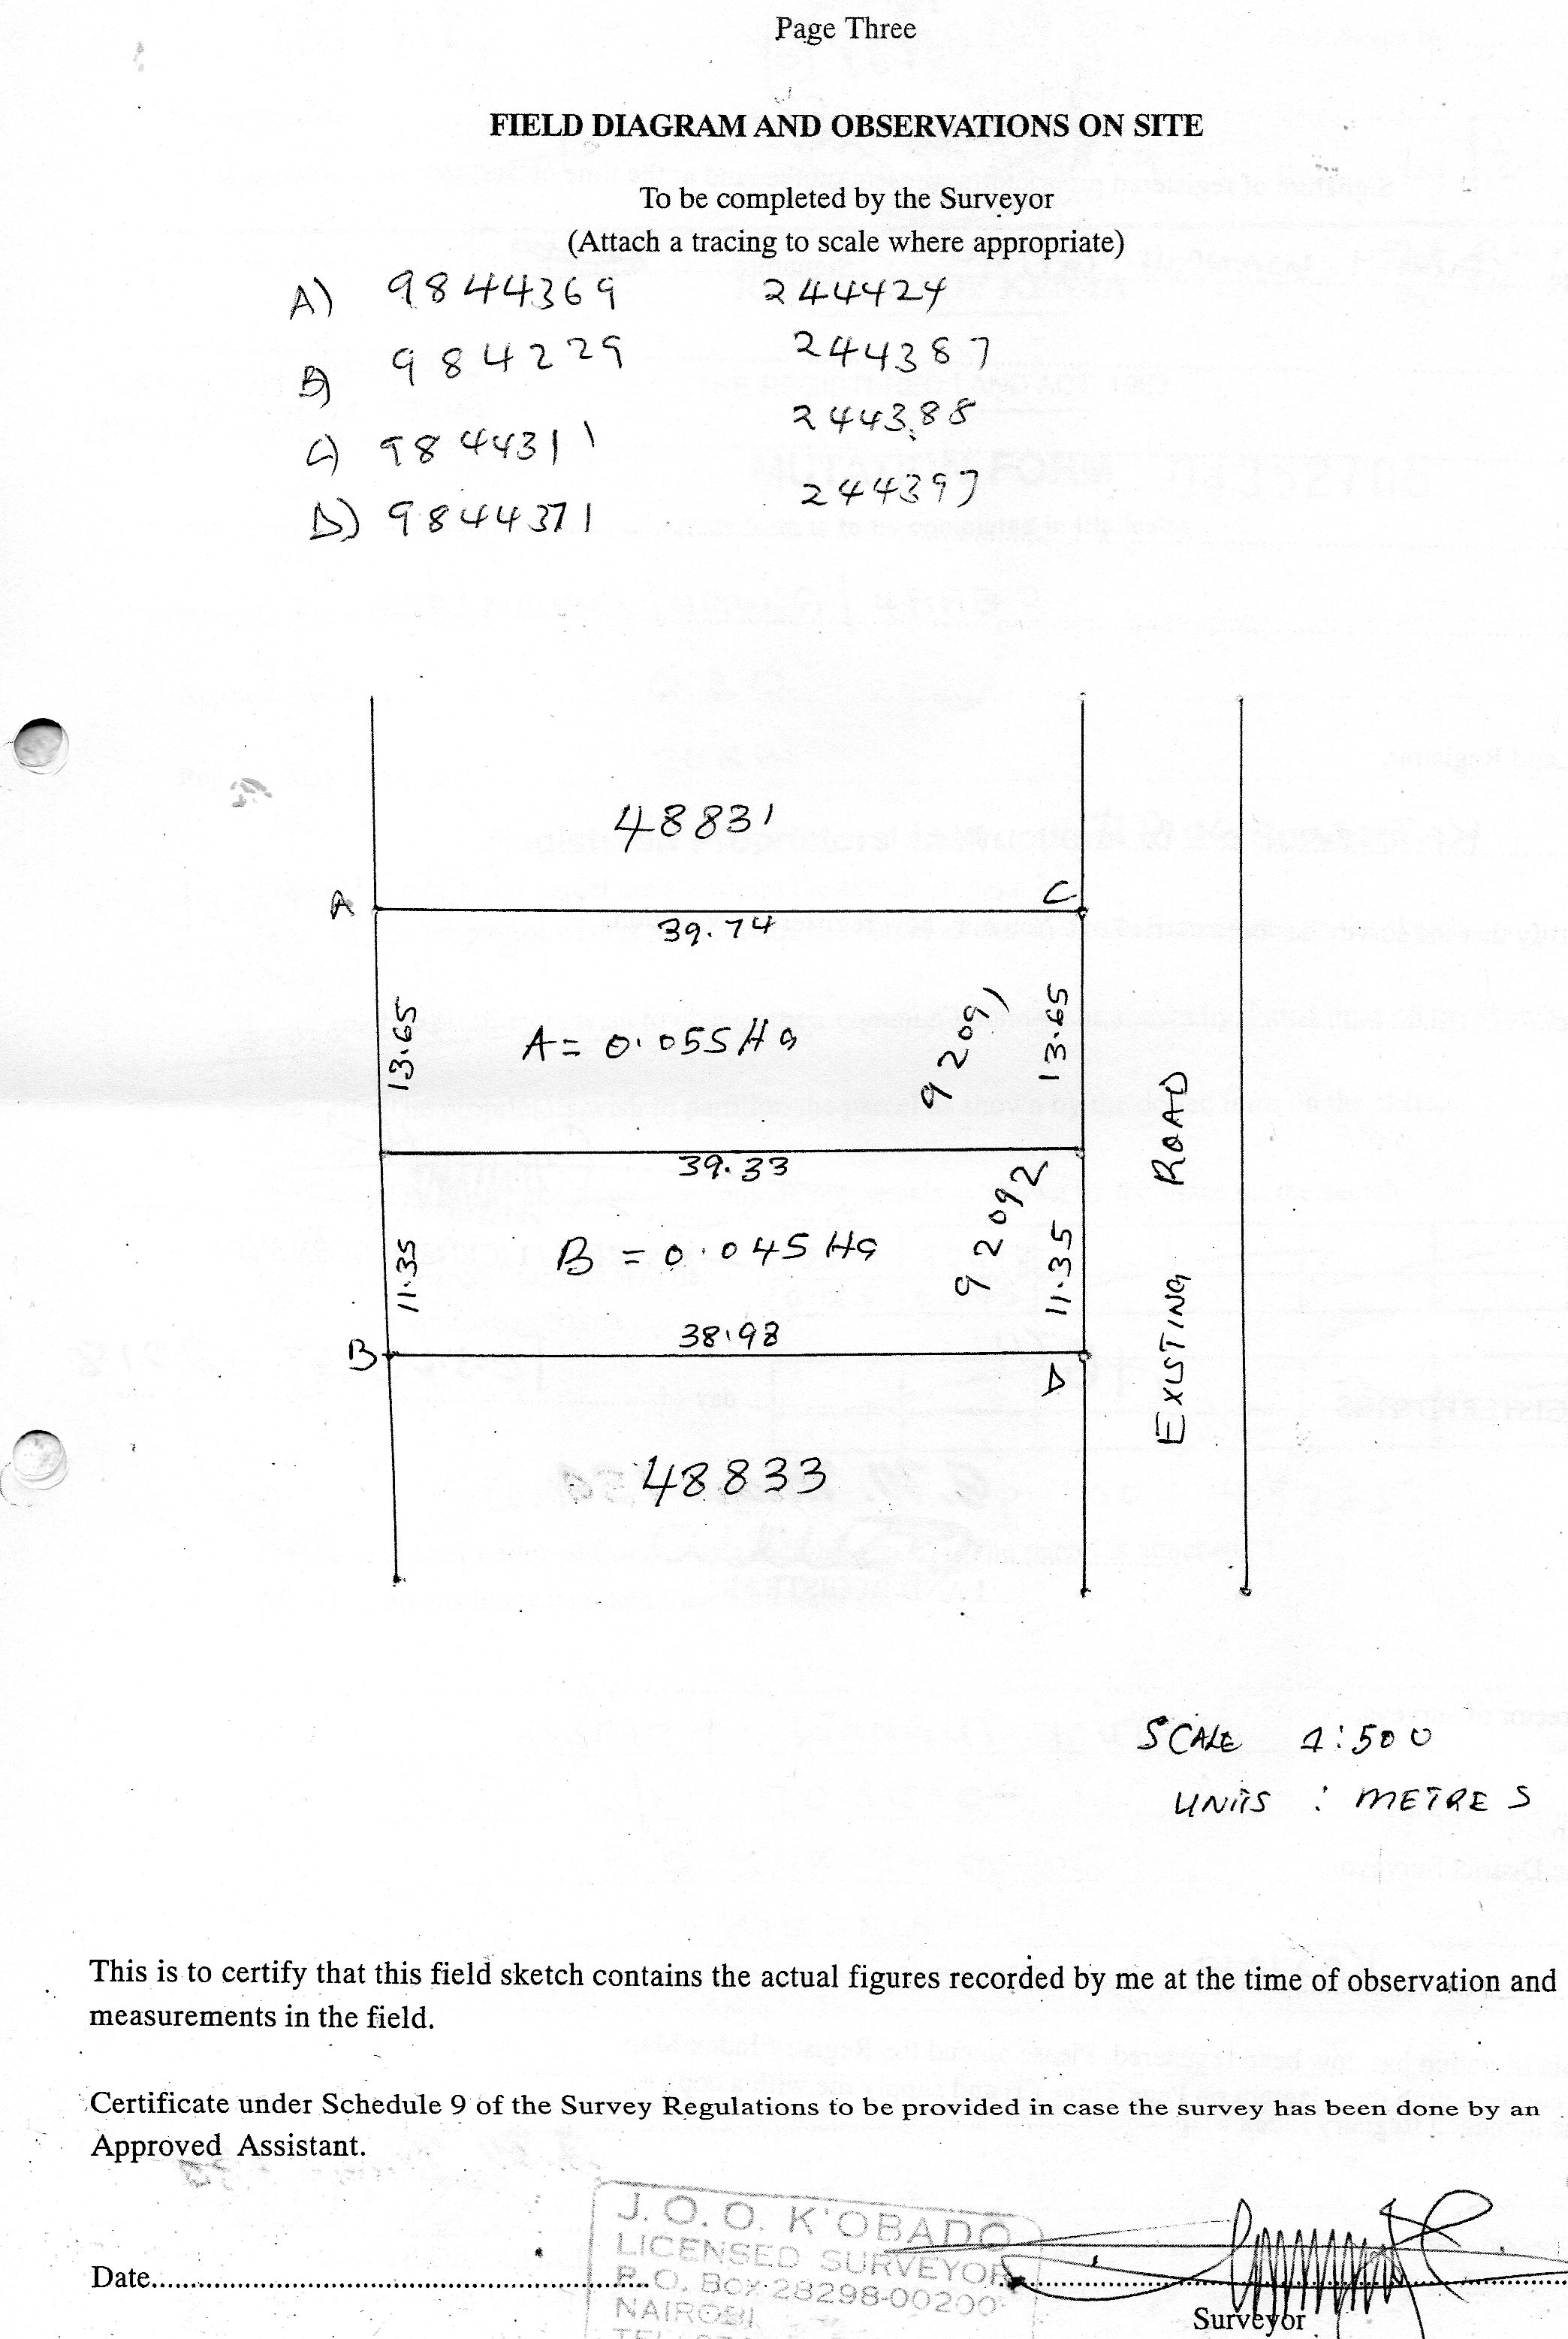 Page Three
FIELD DIAGRAM AND OBSERVATIONS ON SITE
To be completed by the Surveyor
(Attach a tracing to scale where appropriate)
A) 9844369 244424
B) 984229 244387
C) 9844311 244388
D) 9844371 244397
48831
A C
39.74
13.65 A = 0.055 Ha 92091 13.65
39.33
11.35 B = 0.045 Ha 92092 11.35
38.98
B D
EXISTING ROAD
48833
SCALE 1:500
UNITS : METRES
This is to certify that this field sketch contains the actual figures recorded by me at the time of observation and
measurements in the field.
Certificate under Schedule 9 of the Survey Regulations to be provided in case the survey has been done by an
Approved Assistant.
J. O. O. K'OBADO
LICENSED SURVEYOR
Date
P.O. Box 28298-00200
NAIROBI
Surveyor